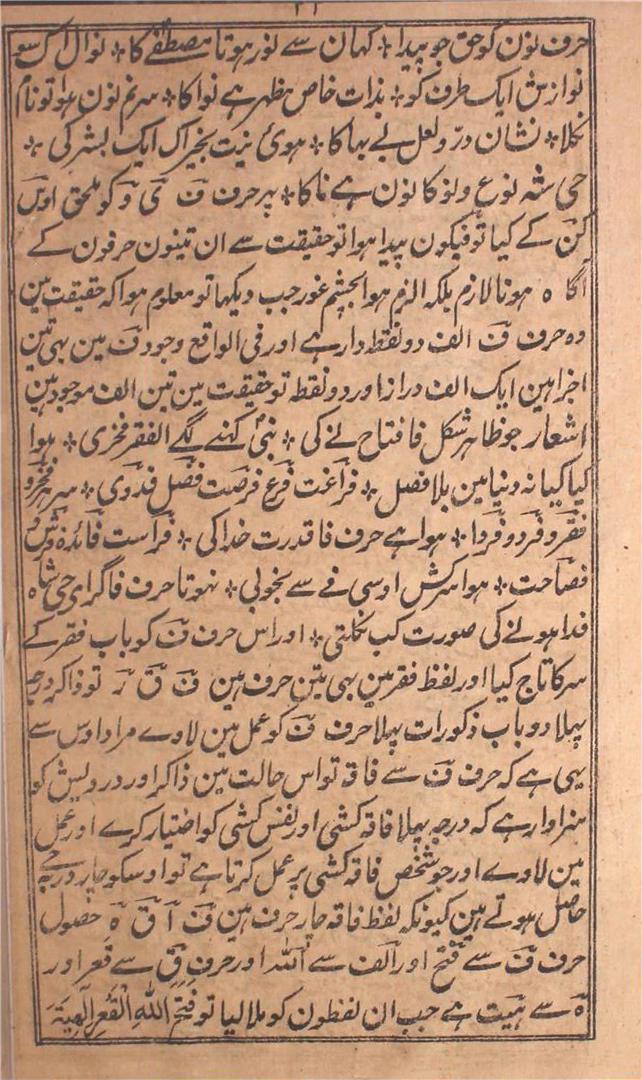 حرف نون کو حق جو پیدا ٭ کہان سے نور ہوتا مصطفٰے کا ٭ نوال اک سو
نوازش ایک طرف کو ٭ بذات خاص مظہر ہے نوا کا ٭ سرنم نون ہوا تو نام
نکلا ٭ نشان درّ و لعل بے بہا کا ٭ ہوئی نیت بخیر اک ایک بشر کی ٭
جی شہ نوع و نوکا نون ہے ناکا ٭ پر حرف فَ یَ وَ کو ملحق اوس
کن کے کیا تو فیکون پیدا ہوا تو حقیقت سے ان تینون حرفون کے
آگاہ ہونا لازم بلکہ الزم ہوا بچشم غور جب دیکھا تو معلوم ہوا کہ حقیقت مین
وہ حرف فَ الف دو نقطہ دار ہے اور فی الواقع وجود فَ مین بہی تین
اجزا ہین ایک الف دراز اور دو نقطہ تو حقیقت مین تین الف موجود ہین
اشعار جو ظاہر شکل فا فتاح نے کی ٭ نبیؐ کہنے لگے الفقر فخری ٭ ہوا
کیا کیا نہ دنیا مین بلا فصل ٭ فراغت فرع فرصت فضل فدوی ٭ سر ہر فخر و
فقر و فرد و فردا ٭ ہوا ہے حرف فا قدرت خدا کی ٭ فراست فائدہ فرش و
فصاحت ٭ ہوا سرکش اوسی فے سے بخوبی ٭ نہوتا حرف فا گر ای جی شاہ
فدا ہونے کی صورت کب نکلتی ٭ اور اس حرف فَ کو باب فقر کے
سر کا تاج کیا اور لفظ فقر مین بہی تین حرف ہین فَ قَ رَ تو ذاکر درجہ
پہلا دو باب ذکورات پہلا حرف فَ کو عمل مین لاوے مراد اوس سے
یہی ہے کہ حرف فَ سے فاقہ تو اس حالت مین ذاکر اور درویش کو
سزاوار ہے کہ درجہ پہلا فاقہ کشی اور نفس کشی کو اختیار کرے اور عمل
مین لاوے اور جو شخص فاقہ کشی پر عمل کرتا ہے تو اوسکو چار درجے
حاصل ہوتے ہین کیونکہ لفظ فاقہ چار حرف ہین فَ آ قَ ہَ حصول
حرف فَ سے فتح اور الف سے اللہ اور حرف قَ سے قعر اور
ہَ سے ہیّت ہے جب ان لفظون کو ملا لیا تو فتح اللہ القعر الٰہیۃ